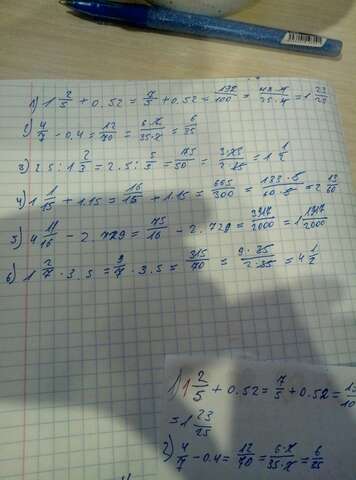 1) 1 2/5 + 0.52 = 7/5 + 0.52 = 192/100 = 48·4/25·4 = 1 23/25
2) 4/7 - 0.4 = 12/70 = 6·2/35·2 = 6/35
3) 2.5 : 1 2/3 = 2.5 : 5/3 = 75/50 = 3·25/2·25 = 1 1/2
4) 1 1/15 + 1.15 = 16/15 + 1.15 = 665/300 = 133·5/60·5 = 2 13/60
5) 4 11/16 - 2.729 = 75/16 - 2.729 = 3917/2000 = 1 1917/2000
6) 1 2/7 · 3.5 = 9/7 · 3.5 = 315/70 = 9·35/2·35 = 4 1/2
1) 1 2/5 + 0.52 = 7/5 + 0.52 =
= 1 23/25
2) 4/7 - 0.4 = 12/70 = 6·2/35·2 = 6/35